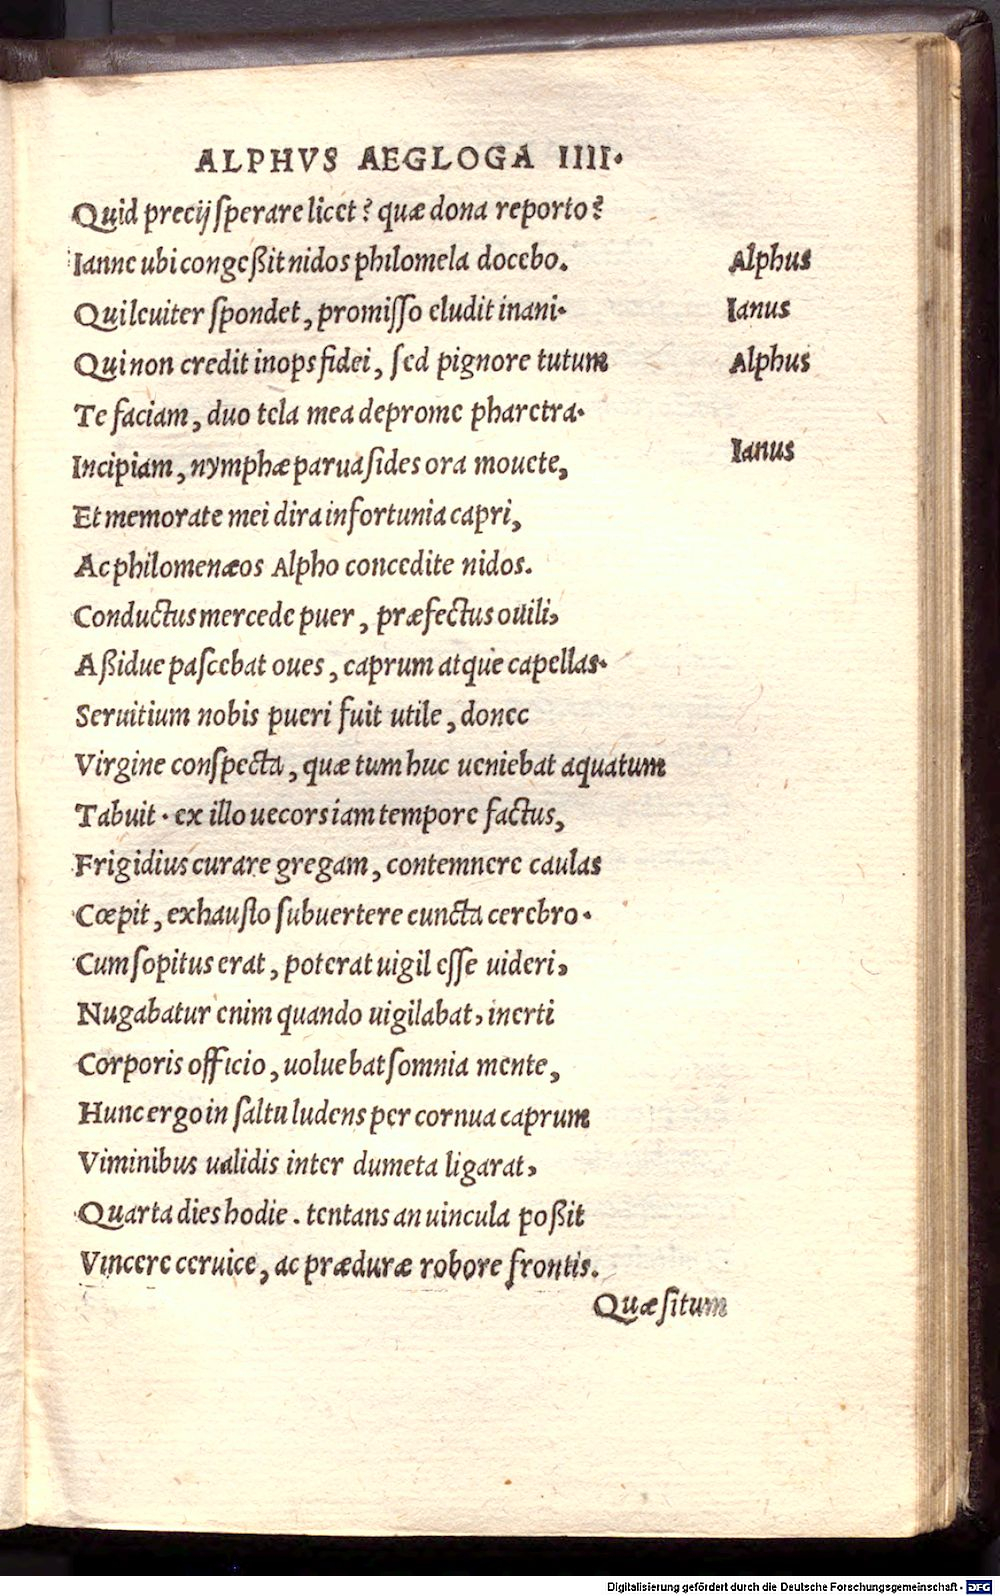 ALPHVS AEGLOGA IIII.
Quid precij ſperare licet? quæ dona reporto?
Ianne ubi congeßit nidos philomela docebo. Alphus
Qui leuiter ſpondet, promiſſo eludit inani. Ianus
Qui non credit inops fidei, ſed pignore tutum Alphus
Te faciam, duo tela mea deprome pharetra.
Incipiam, nymphæ parua ſides ora mouete, Ianus
Et memorate mei dira infortunia capri,
Ac philomenæos Alpho concedite nidos.
Conductus mercede puer, præfectus ouili,
Aßidue paſcebat oues, caprum atque capellas.
Seruitium nobis pueri fuit utile, donec
Virgine conſpecta, quæ tum huc ueniebat aquatum
Tabuit. ex illo uecors iam tempore factus,
Frigidius curare gregam, contemnere caulas
Cœpit, exhauſto ſubuertere cuncta cerebro.
Cum ſopitus erat, poterat uigil eſſe uideri,
Nugabatur enim quando uigilabat, inerti
Corporis officio, uoluebat ſomnia mente,
Hunc ergo in ſaltu ludens per cornua caprum
Viminibus ualidis inter dumeta ligarat,
Quarta dies hodie. tentans an uincula poßit
Vincere ceruice, ac præduræ robore frontis.
Quæſitum
Digitalisierung gefördert durch die Deutsche Forschungsgemeinschaft - DFG